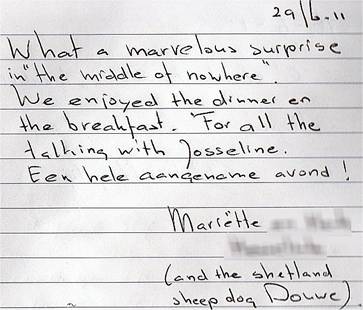 29/6-11
What a marvelous surprise
in "the middle of nowhere".
We enjoyed the dinner en
the breakfast. For all the
talking with Josseline.
Een hele aangename avond!
Mariëtte
(and the shetland
sheep dog Douwe).